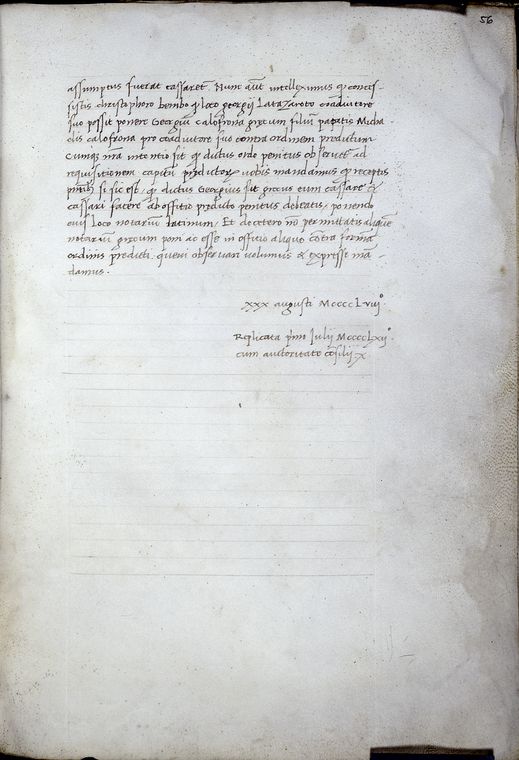 56
assumptus fuerat cassaret. Nunc aūt intelleximus qđ conces-
sistis christophoro bembo qđ loco georgii Latazaroto coadiutore
suo possit ponere Georgiū calofrona grecum filiū papatis Micha
elis calofrona pro coadiutore suo contra ordinem predictum
Cumq3 nrā intentio sit qđ dictus ordo penitus observet ad
requisitionem capitū predictoꝝ vobis mandamus qđ receptis
pntib3 si sic est, qđ dictus Georgius sit grecus eum cassare &
cassari facere ab offitio predicto penitus debeatis, ponendo
eius loco notariū latinum, Et decetero nō permittatis aliquē
notariū grecum poni ac esse in offitio aliquo cōtra formā
ordinis predicti. quem observari volumus & expresse mā-
damus.
xxx augusti MccccLviii°.
Replicata p̄mo Julii MccccLxii°.
cum auctoritate cōsilii x